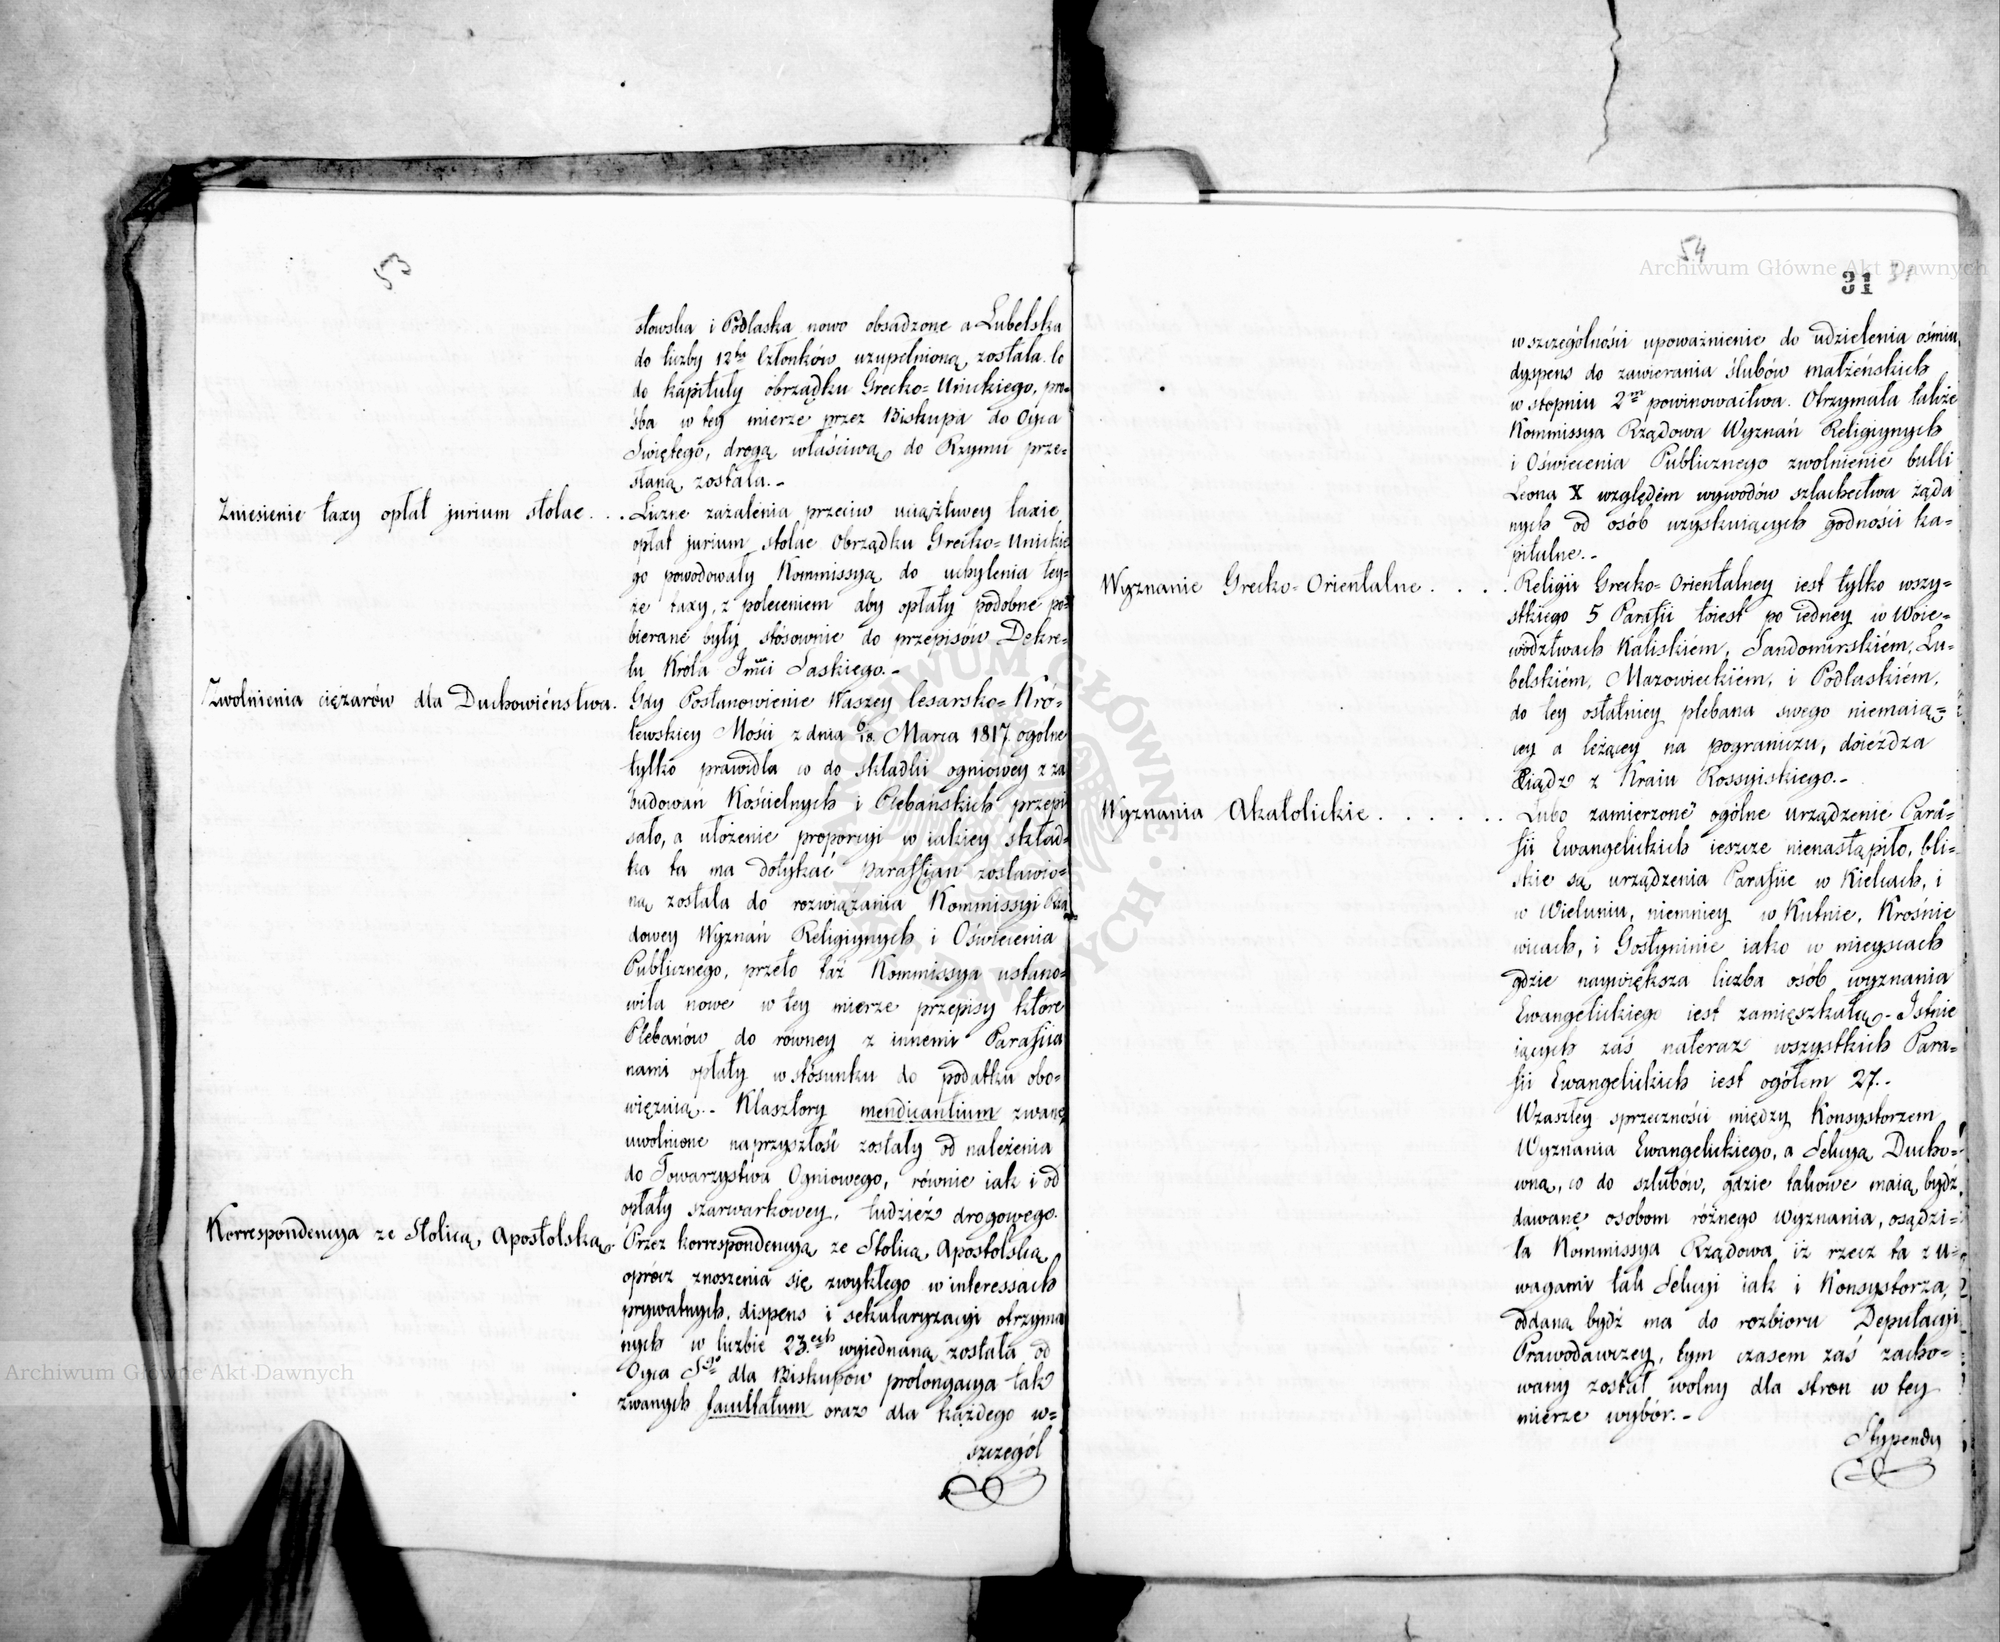 53
słowska i Podlaska nowo obsadzone a Lubelska
do liczby 12tu Członków uzupełnioną została. Co
do kapituły obrządku Grecko-Unickiego, pro-
śba w tey mierze przez Biskupa do Oyca
Świętego, drogą właściwą do Rzymu prze-
słaną została.-
Zniesienie taxy opłat jurium stolae...
Liczne zażalenia przeciw uciążliwey taxie
opłat jurium stolae Obrządku Grecko-Unickie
go powodowały Kommissyą do uchylenia tey-
że taxy, z poleceniem aby opłaty podobne po-
bierane były stósownie do przepisów Dekre-
tu Króla Jmci Saskiego.-
Zwolnienia ciężarów dla Duchowieństwa.
Gdy Postanowienie Waszey Cesarsko-Kró-
lewskiey Mości z dnia 6/18 Marca 1817 ogólne
tylko prawidła co do składki ogniowey z za
budowań Kościelnych i Plebańskich przepi
sało, a ułożenie proporcyi w iakiey skład-
ka ta ma dotykać parafian zostawio-
ną została do rozwiązania Kommissyi Rzą-
dowey Wyznań Religiynych i Oświecenia
Publicznego, przeto taż Kommissya ustano-
wiła nowe w tey mierze przepisy które
Plebanów do równey z innemi Parafiia
nami opłaty w stósunku do podatku obo-
więżuią.- Klasztory mendicantium zwane
uwolnione na przyszłość zostały od należenia
do Towarzystwa Ogniowego, równie iak i od
opłaty szarwarkowey, tudzież drogowego.
Korrespondencya ze Stolicą Apostolską.
Przez korrespondencyą ze Stolicą Apostolską
oprócz znoszenia się zwykłego w interessach
prywatnych, dispens i sekularyzacyi otrzyma
nych w liczbie 23.ech wyiednaną została od
Oyca Sgo dla Biskupów prolongacya tak
zwanych facultatum oraz dla każdego w-
szczegól
54
31
31
w szczególności upoważnienie do udzielenia ośmiu
dyspens do zawierania ślubów małżeńskich
w stopniu 2m powinowactwa. Otrzymała także
Kommissya Rządowa Wyznań Religiynych
i Oświecenia Publicznego zwolnienie bulli
Leona X względem wywodów szlachectwa żąda
nych od osób uzyskuiących godności ka-
pitulne.-
Wyznanie Grecko-Orientalne....
Religii Grecko-Orientalney iest tylko wszy-
stkiego 5 Parafii toiest po iedney w Woie-
wództwach Kaliskiém, Sandomirskiém, Lu-
belskiém, Mazowieckiém, i Podlaskiém,
do tey ostatniey plebana swego niemaią-
cey a leżącey na pograniczu, doieżdża
Xiądz z Kraiu Rossyiskiego.-
Wyznania Akatolickie......
Lubo zamierzone ogólne urządzenie Para-
fii Ewangelickich ieszcze nienastąpiło, bli-
skie są urządzenia Parafiie w Kielcach, i
w Wieluniu, niemniey w Kutnie, Krośnie
wicach, i Gostyninie iako w mieyscach
gdzie naywiększa liczba osób wyznania
Ewangelickiego iest zamięszkałą.- Istnie
iących zaś nateraz wszystkich Para-
fii Ewangelickich iest ogółem 27.-
W zaszłey sprzeczności między Konsystorzem
Wyznania Ewangelickiego, a Sekcyą Ducho-
wną, co do szlubów, gdzie takowe maią bydź
dawane osobom różnego wyznania, osądzi-
ła Kommissya Rządowa iż rzecz ta z u-
wagami tak Sekcyi iak i Konsystorza,
oddaną bydź ma do rozbioru Deputacyi
Prawodawczey, tym czasem zaś zacho-
wany został wolny dla stron w tey
mierze wybór.-
Stypendy